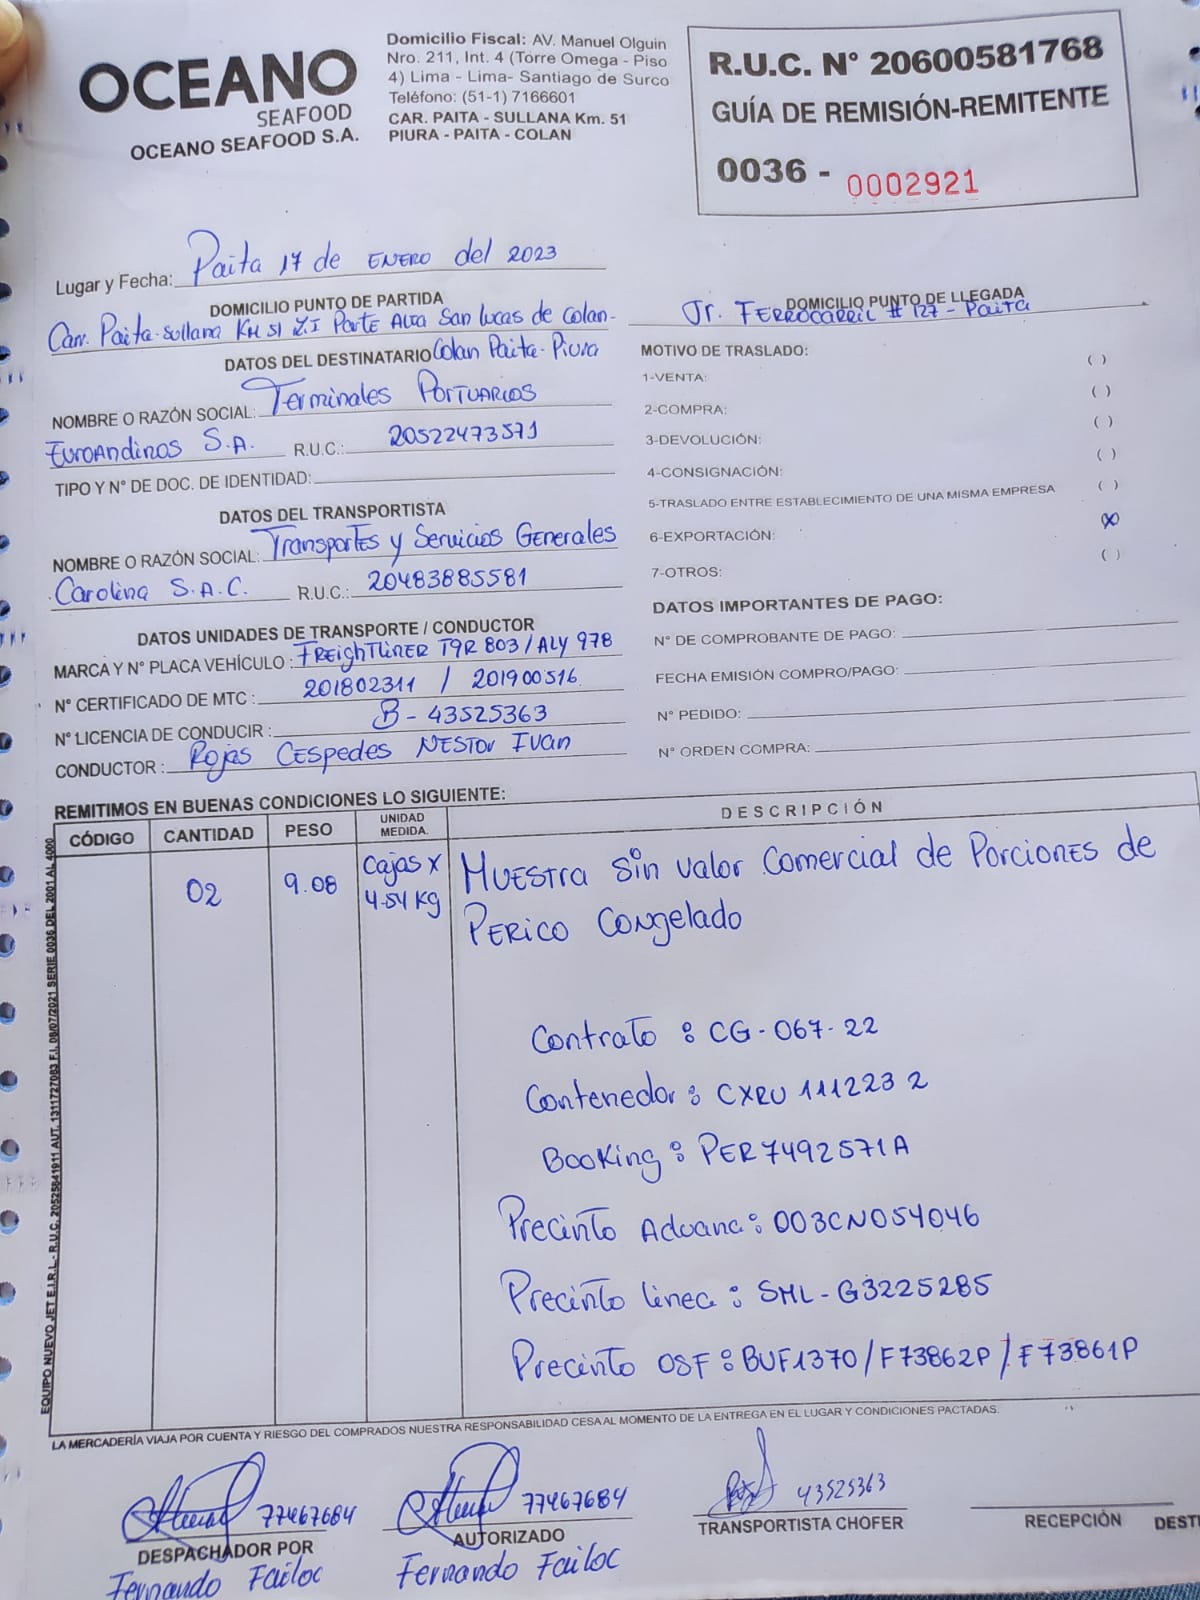 OCEANO
SEAFOOD
OCEANO SEAFOOD S.A.
Domicilio Fiscal: AV. Manuel Olguin
Nro. 211, Int. 4 (Torre Omega - Piso
4) Lima - Lima- Santiago de Surco
Teléfono: (51-1) 7166601
CAR. PAITA - SULLANA Km. 51
PIURA - PAITA - COLAN
R.U.C. N° 20600581768
GUÍA DE REMISIÓN-REMITENTE
0036 - 0002921
Lugar y Fecha: Paita 17 de ENERO del 2023
DOMICILIO PUNTO DE PARTIDA
Carr. Paita-sullana KM 51 Z.I Parte Alta San Lucas de Colan-
Colan Paita-Piura
DOMICILIO PUNTO DE LLEGADA
Jr. FERROCARRIL # 127 - Paita
DATOS DEL DESTINATARIO
NOMBRE O RAZÓN SOCIAL: Terminales PORTUARIOS
EuroAndinos S.A. R.U.C.: 20522473571
TIPO Y N° DE DOC. DE IDENTIDAD:
DATOS DEL TRANSPORTISTA
NOMBRE O RAZÓN SOCIAL: Transportes y Servicios Generales
Carolina S.A.C. R.U.C.: 20483885581
DATOS UNIDADES DE TRANSPORTE / CONDUCTOR
MARCA Y N° PLACA VEHÍCULO : FREIGHTLINER T9R 803 / ALY 978
N° CERTIFICADO DE MTC : 201802311 / 201900516
N° LICENCIA DE CONDUCIR : B - 43525363
CONDUCTOR : Rojas Cespedes NESTOR IVan
MOTIVO DE TRASLADO:
1-VENTA: ( )
2-COMPRA: ( )
3-DEVOLUCIÓN: ( )
4-CONSIGNACIÓN: ( )
5-TRASLADO ENTRE ESTABLECIMIENTO DE UNA MISMA EMPRESA ( )
6-EXPORTACIÓN: (X)
7-OTROS: ( )
DATOS IMPORTANTES DE PAGO:
N° DE COMPROBANTE DE PAGO:
FECHA EMISIÓN COMPRO/PAGO:
N° PEDIDO:
N° ORDEN COMPRA:
REMITIMOS EN BUENAS CONDICIONES LO SIGUIENTE:
CÓDIGO CANTIDAD PESO UNIDAD MEDIDA. DESCRIPCIÓN
02 9.08 Cajas x 4.54 Kg MUESTRA Sin valor Comercial de Porciones de
PERICO Congelado
Contrato : CG-067-22
Contenedor : CXRU 111223 2
Booking : PER7492571A
Precinto Aduana : 003CN054046
Precinto linea : SML-G3225285
Precinto OSF : BUF1370/F73862P/F73861P
EQUIPO NUEVO JET E.I.R.L - R.U.C. 20525841911 AUT. 1311727083 F.I. 08/07/2021 SERIE 0036 DEL 2001 AL 4000
LA MERCADERÍA VIAJA POR CUENTA Y RIESGO DEL COMPRADOS NUESTRA RESPONSABILIDAD CESA AL MOMENTO DE LA ENTREGA EN EL LUGAR Y CONDICIONES PACTADAS.
77467684
DESPACHADOR POR
Fernando Failoc
77467684
AUTORIZADO
Fernando Failoc
43525363
TRANSPORTISTA CHOFER
RECEPCIÓN DESTI